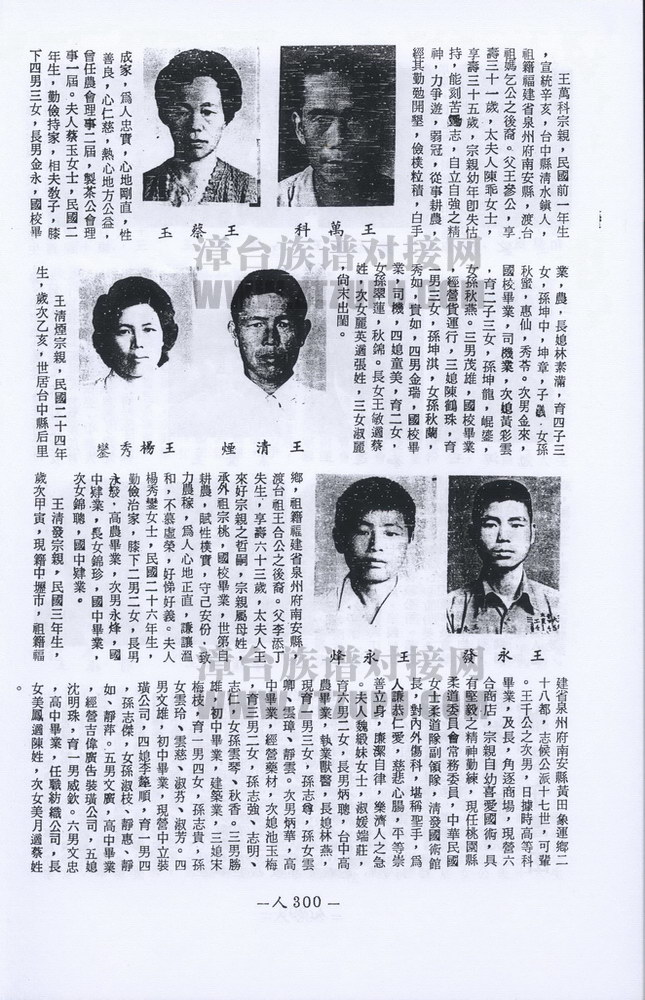 王萬科宗親，民國前一年生
，宣統辛亥，台中縣清水鎮人，
祖籍福建省泉州府南安縣，渡台
祖媽乞公之後裔。父王參公，享
壽三十一歲，太夫人陳乖女士，
享壽三十五歲，宗親幼年卽失怙
持，能刻苦志，自立自強之精
神，力爭遊，弱冠，從事耕農，
經其勤勉開墾，儉樸粒積，白手
王萬科
王蔡玉
成家，爲人忠實，心地剛直，性
善良，心仁慈，熱心地方公益，
曾任農會理事二屆，製茶公會理
事一屆。夫人蔡玉女士，民國二
年生，勤儉持家，相夫敎子，膝
下四男三女，長男金永，國校畢
業，農，長媳林素滿，育四子三
女，孫坤中，坤章，子，女孫
秋蜜，惠仙，秀苓。次男金來，
國校畢業，司機業，次媳黃彩雲
，育二子三女，孫坤龍，崐鎏，
女孫秋燕。三男茂雄，國校畢業
，經營貨運行，三媳陳鶴珠，育
一男三女，孫坤淇，女孫秋蘭，
秀如，貴如，四男金瑞，國校畢
業，司機，四媳童美，育二女，
女孫翠蓮，秋錦。長女王敏適蔡
姓，次女麗英適張姓，三女淑麗
，尚未出閣。
王清煙
王楊秀鑾
王清煙宗親，民國二十四年
生，歲次乙亥，世居台中縣后里
鄉，祖籍福建省泉州府南安縣，
渡台祖王合公之後裔。父李添丁
失生，享壽六十三歲，太夫人王
來好宗親之哲嗣，宗親屬母姓，
承外祖宗桃，國校畢業，世第自
耕農，賦性樸實，守己安份，致
力農稼，爲人心地正直，謙讓溫
和，不慕虛榮，好悌好義。夫人
楊秀鑾女士，民國二十六年生，
勤儉治家，膝下二男二女，長男
永發，高農畢業，次男永烽，國
中肄業，長女錦珍，國中畢業，
次女錦聰，國中肄業。
王清發宗親，民國三年生，
歲次甲寅，現籍中壢市，祖籍福
王永發
王永烽
建省泉州府南安縣黃田象運鄉二
十八都，志候公派十七世，可輩
。王千公之次男，日據時高等科
畢業，及長，角逐商場，現營六
合商店，宗親自幼喜愛國術，具
有堅毅之精神勤練，現任桃園縣
柔道委員會常務委員，中華民國
女士柔道隊副領隊，清發國術館
長，對內外傷科，堪稱聖手，爲
人謙恭仁愛，慈悲心腸，平等崇
善立身，廉潔自律，樂濟人之急
。夫人魏緞妹女士，淑媛端莊，
育六男二女，長男炳聰，台中高
農畢業，執業獸醫，長媳林燕，
現育一男三女，孫志尊，孫女雲
卿、雲瑋、靜雲。次男炳華，高
中畢業，經營藥材，次媳池玉梅
，育三男二女，孫志強、志明、
志仁，女孫雲琴、秋香。三男勝
雄，初中畢業，建築業，三媳宋
梅枝，育一男四女，孫志貴，孫
女雲玲、雲慈、淑芬、淑芳。四
男文雄，初中畢業，現營中立裝
璜公司，四媳李順，育一男四
，孫志傑，女孫淑枝、靜惠、靜
如、靜萍。五男文廣，高中畢業
，經營吉偉廣告裝璜公司，五媳
沈明珠，育一男威欽。六男文忠
，高中畢業，任職紡織公司，長
女美鳳適陳姓，次女美月適蔡姓
。
—人300—
漳台族谱对接网
漳台族谱对接网